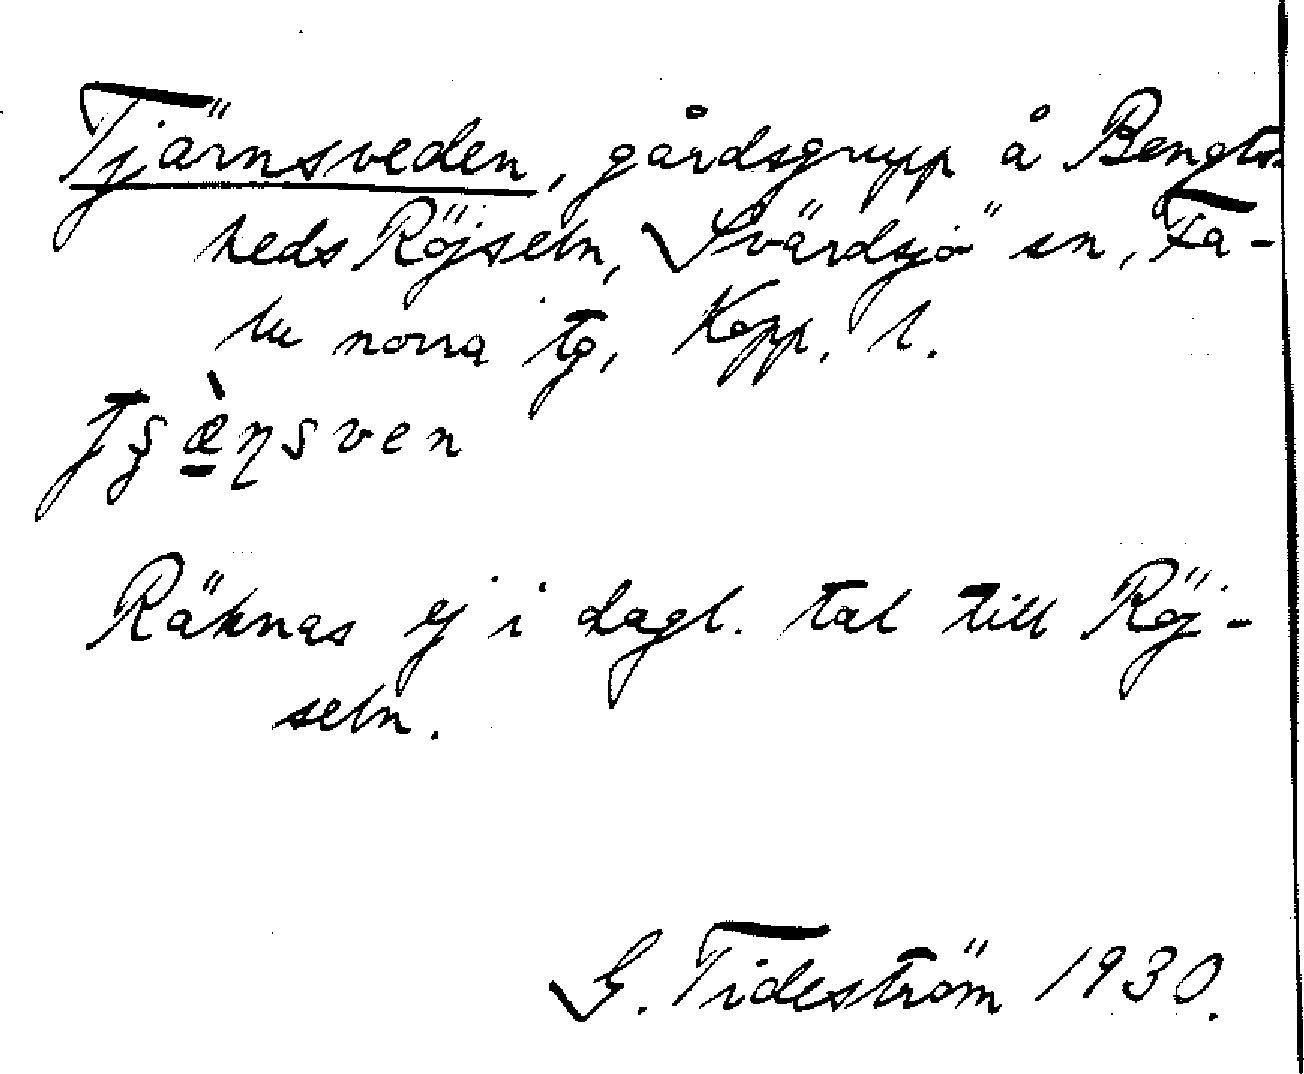 Tjärnsveden, gårdsgrupp å Bengts-
heds Röjseln, Svärdsjö sn, Fa-
lu norra tg, Kopp. l.
Räknas ej i dagl. tal till Röj-
seln.
G. Tideström 1930.